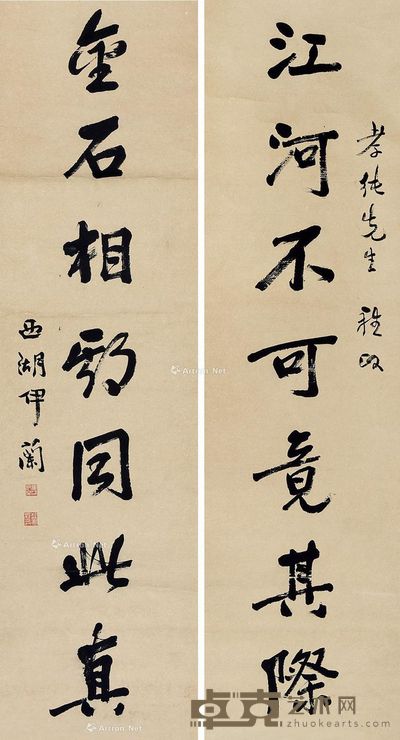 江河不可竟其際
孝純先生 雅政
金石相期同此真
西湖伊蘭
Artron.Net
Artron.Net
Artron.Net
Artron.Net
卓克艺术网
zhuokearts.com